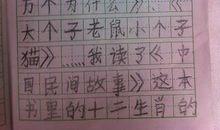 万个为什么》》……《
大个子老鼠小个子
猫》……我读了《中
国民间故事》这本
书里的十二生肖的